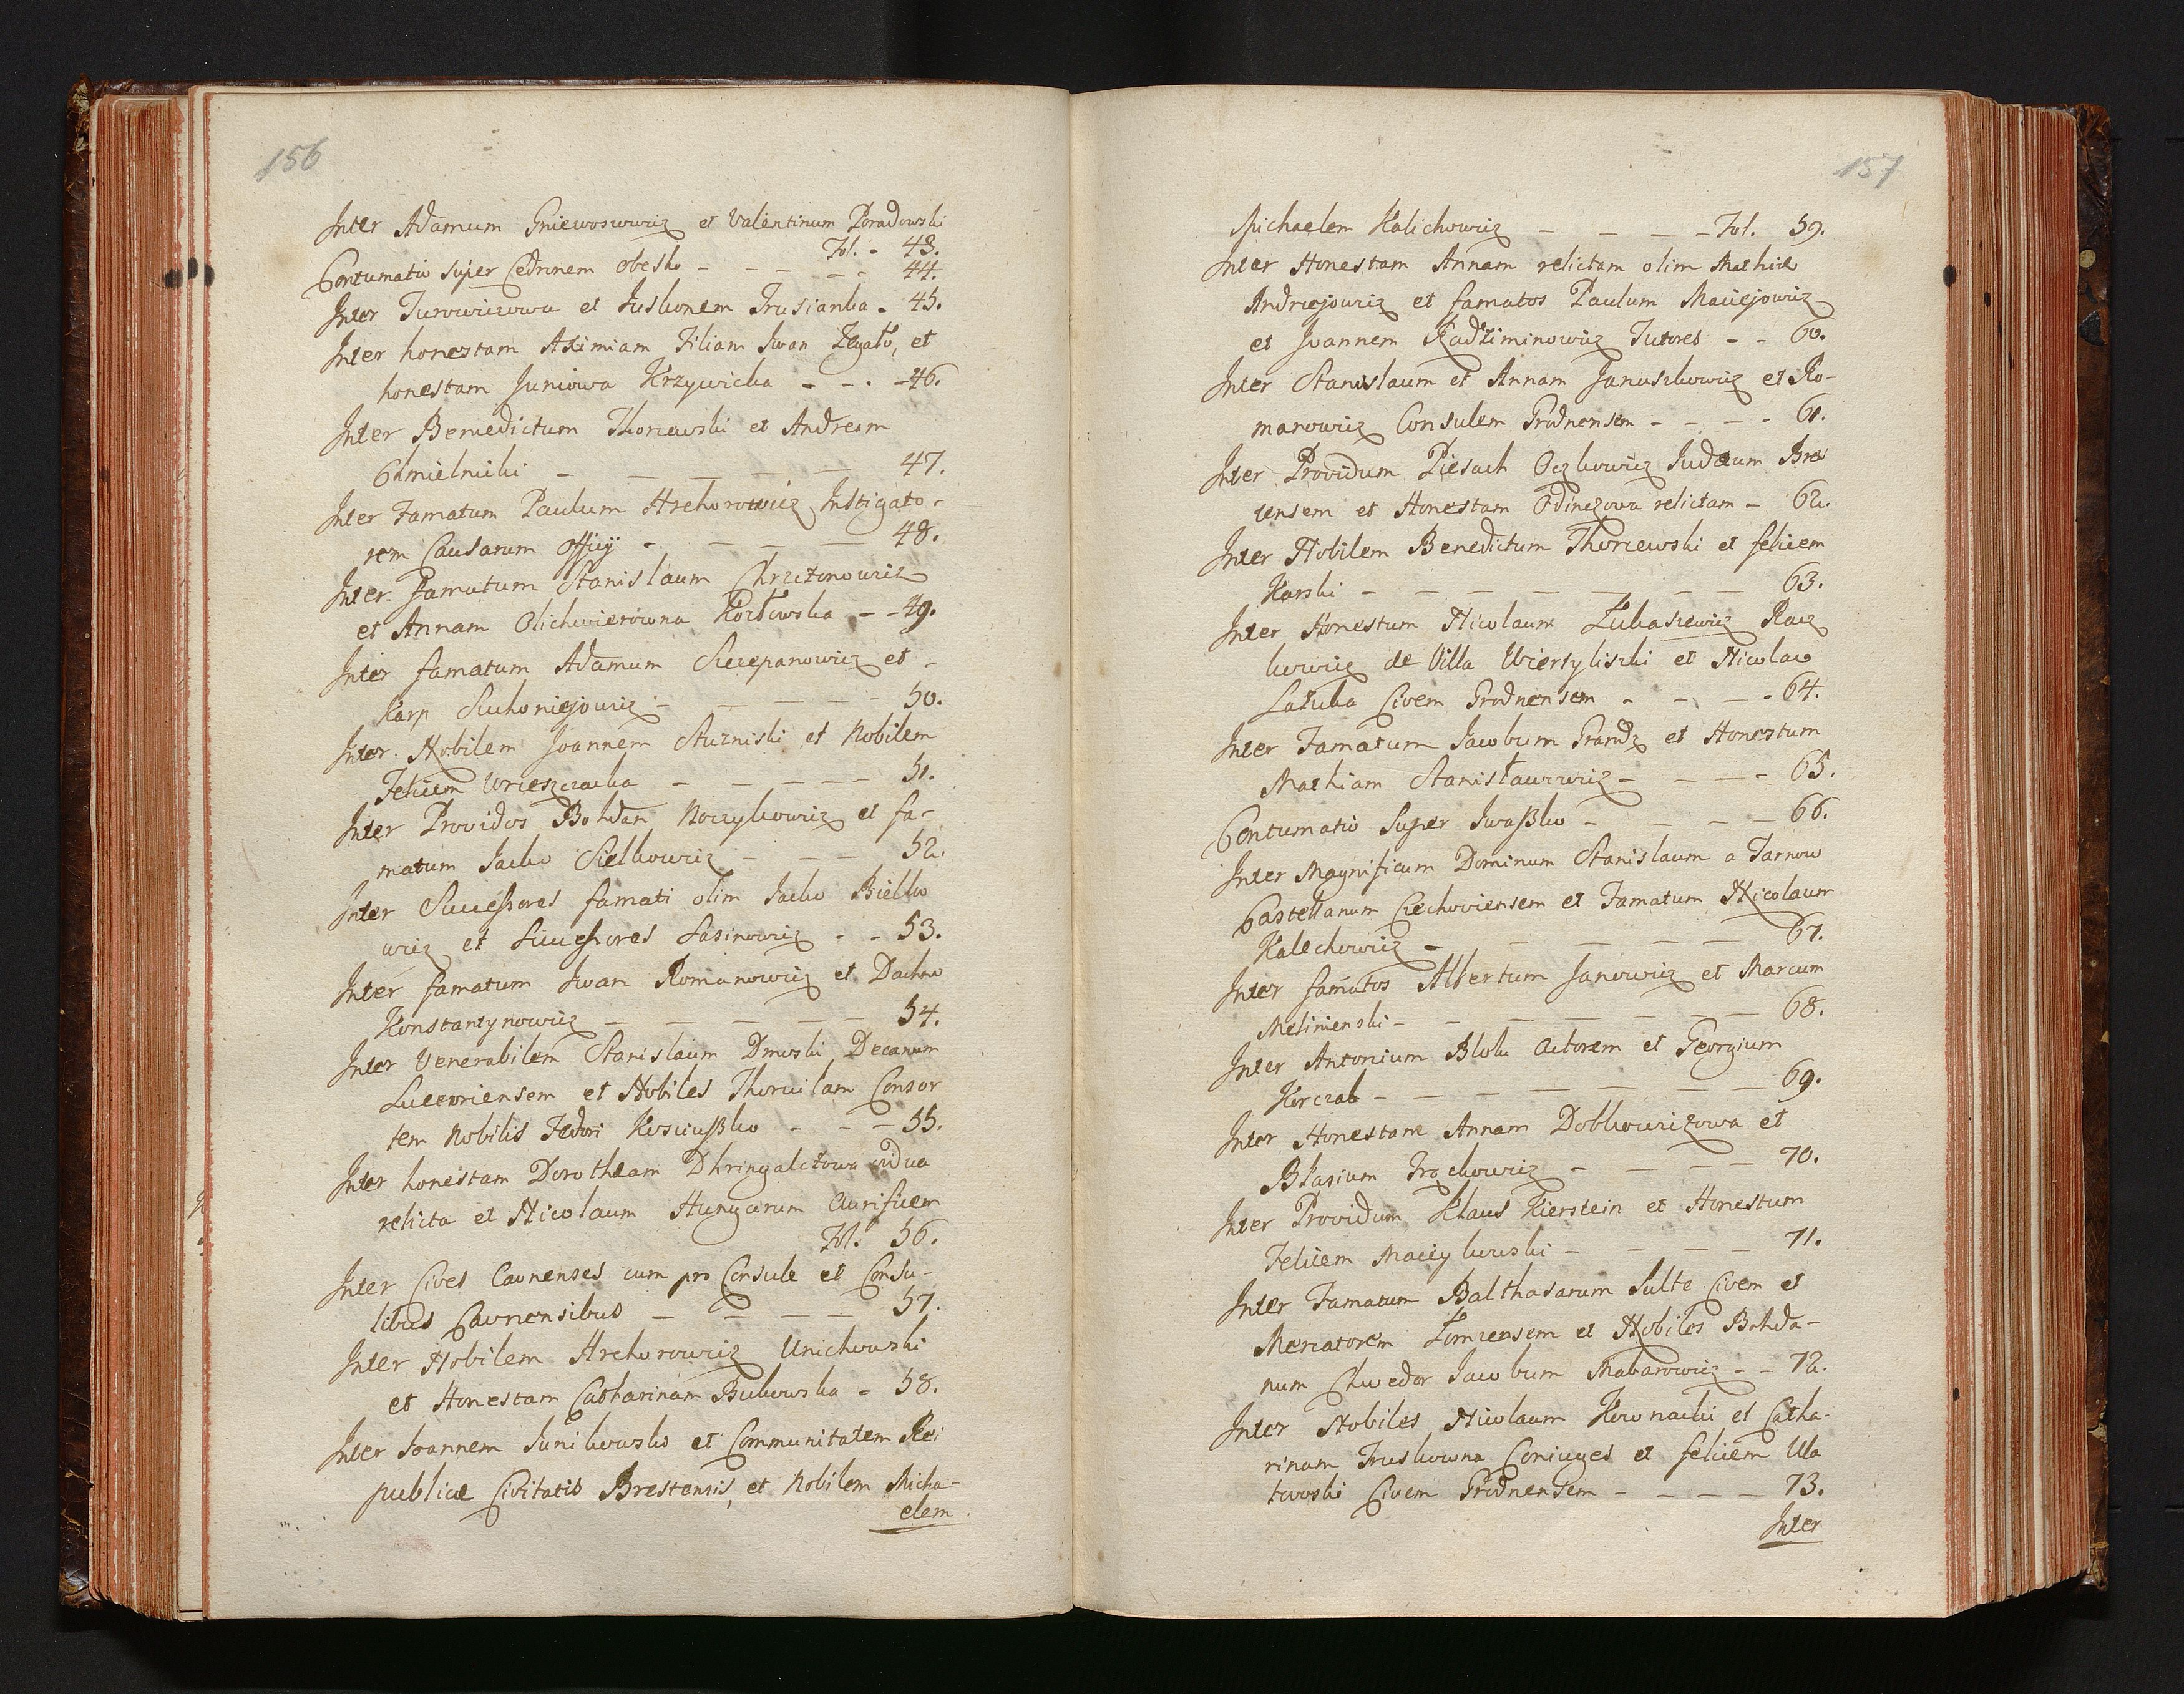 156
Inter Adamum Gniewoszowicz et Valentinum Poradowski
Fol. - 43.
Contumatio super Cedronem obesko - - - - - 44.
Inter Turowiczowa et Juskonem Trusianka - 45.
Inter honestam Aximiam Filiam Iwan Zegato, et
honestam Juniowa Krzywicka - - - - 46.
Inter Benedictum Thorzewski et Andream
Chmielnicki - - - - - 47.
Inter Famatum Paulum Hrehorowicz Instigato-
rem Causarum officÿ - - - - 48.
Inter Famatum Stanislaum Chrzczonowicz
et Annam Olichwierowna Kozłowska - - 49.
Inter famatum Adamum Szczepanowicz et -
Karp Suchoniejowicz - - - - 50.
Inter Nobilem Joannem Sturniski et Nobilem
Felicem Wrieszczaka - - - - - 51.
Inter Providos Bohdan Noczykowicz et fa-
matum Jacko Sielkowicz - - - 52.
Inter Successores famati olim Jacko Bielko
wicz et Successores Sasinowicz - - 53.
Inter famatum Iwan Romanowicz et Dachno
Konstantynowicz - - - - - 54.
Inter Venerabilem Stanislaum Dmoski Decanum
Luceoriensem et Nobiles Thorcilam Consor
tem Nobilis Fedori Kosciuszko - - - 55.
Inter honestam Dorotheam Dhringalczowa vidua
relicta et Nicolaum Hungarum Aurificem
Fol. 56.
Inter Cives Caunenses cum pro Consule et Consu-
libus Caunensibus - - - - 57.
Inter Nobilem Hrehorowicz Unichowski
et Honestam Catharinam Bukowska - 58.
Inter Joannem Junikowsko et Communitatem Rei
publicae Civitatis Brestensis, et Nobilem Micha-
elem
157
Michaelem Kalichowicz - - - - Fol. 59.
Inter Honestam Annam relictam olim Mathiae
Andrejowicz et famatos Paulum Maciejowicz
et Joannem Radziminowicz Tutores - - 60.
Inter Stanislaum et Annam Januszkowicz et Ro-
manowicz Consulem Grodnensem - - - - 61.
Inter Providum Piesach Oczkowicz Judaeum Bres
tensem et Honestam Odinczowa relictam - 62.
Inter Nobilem Benedictum Thorzewski et felicem
Karski - - - - - - - 63.
Inter Honestum Nicolaum Lukaszewicz Racz
kowicz de Villa Wiersyliszki et Nicolao
Lazuka Civem Grodnensem - - - - 64.
Inter Famatum Jacobum Grandz et Honestum
Mathiam Stanisławowicz - - - - 65.
Contumatio Super Iwaszko - - - - 66.
Inter Magnificum Dominum Stanislaum a Tarnow
Castellanum Czechoviensem et Famatum Nicolaum
Kalechowicz - - - - - 67.
Inter famatos Albertum Janowicz et Marcum
Melinienski - - - - - - 68.
Inter Antonium Blok Actorem et Georgium
Korczak - - - - - - 69.
Inter Honestam Annam Dobkowiczowa et
Blasium Troczkowicz - - - - 70.
Inter Providum Klaus Kierstein et Honestum
Felicem Maciykowski - - - - 71.
Inter Famatum Balthasarum Sulte Civem et
Mercatorem Lomzensem et Nobiles Bohda-
num Chwedor Jacobum Makarowicz - - 72.
Inter Nobiles Nicolaum Kownacki et Catha-
rinam Truskowna Coniuges et felicem Ula
towski Civem Grodnensem - - - - 73.
Inter